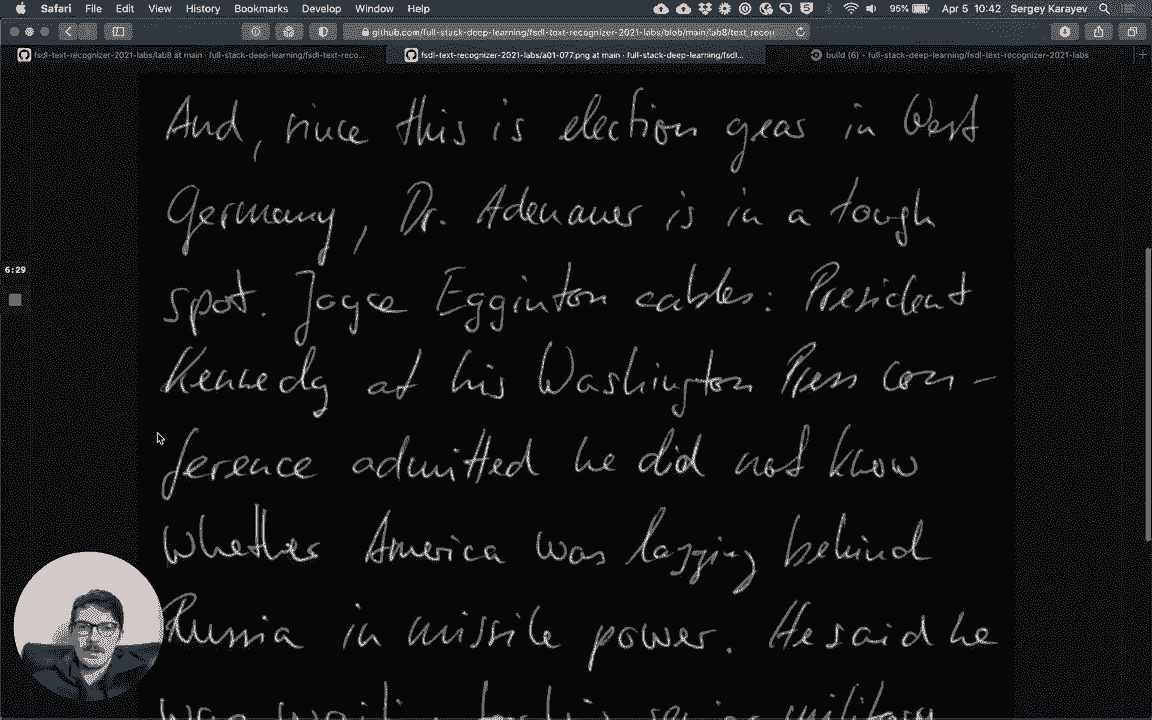 Safari File Edit View History Bookmarks Develop Window Help 95% Apr 5 10:42 Sergey Karayev
github.com/full-stack-deep-learning/fsdl-text-recognizer-2021-labs/blob/main/lab8/text_recog
fsdl-text-recognizer-2021-labs/lab8 at main · full-stack-deep-learning/fsdl-text-reco... fsdl-text-recognizer-2021-labs/a01-077.png at main · full-stack-deep-learning/fsdl... build (6) · full-stack-deep-learning/fsdl-text-recognizer-2021-labs
And, since this is election year in West
Germany, Dr. Adenauer is in a tough
6:29
spot. Joyce Egginton cables: President
Kennedy at his Washington Press con-
ference admitted he did not know
whether America was lagging behind
Russia in missile power. He said he